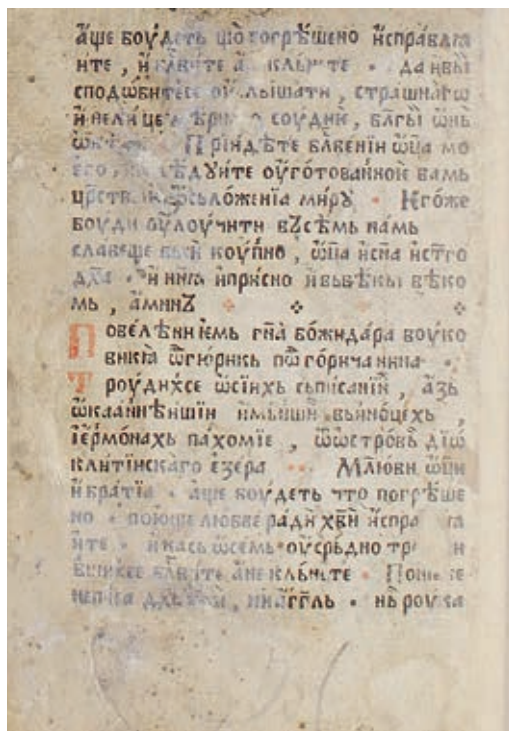 а҆ще боу́деть що̀ погрѣшено и҆спра́влꙗ
ите , и҆ бл҃ви́те а҆ кльнѣте • да и҆ вы̀
сподѡ́битесе ѹ҆слышати , страшна́гѡ
и҆ нелицемѣрна соудиѝ , бл҃гы́ѝ ѡ҆нь
Прїидѣте бл҃ве́нїи ѿц҃а мо
его , наслѣдꙋите оу҆го́тованноѥ вамь
цр҃ство ѿ сьло́женїа ми́рꙋ • Ѥго́же
боуди оу҆лоучити вꙁсѣмь намь
славеще коу́пно , ѿц҃а и҆ сн҃а и҆ ст҃го
дх҃а • и҆ нин҃ꙗ и҆ при́сно и҆ вьвѣкы вѣко
мь , а҆минꙁ
Повелѣнїемь гн҃а бо́жида́ра воуко
викꙗ̀ ѿ гю́рикь по́горичанина •
Троуди́хсе ѡ҆ си́ихь сьписанїи , а҆зь
ѡ҆каа́ннѣишїи и҆ мьнши вьи́ноцехь ,
їе҆рмо́нахь пахо́мїе , ѿ ѡ҆стро́вь дїѡ
клитїискаго е҆зера • Мл҃ю вы ѿц҃и
и҆ бра́тїа • а҆ще боу́деть что погрѣше
но • пою́ще лю́бве ра́ди хв҃и и҆спра
ите • и҆ кась ѡ҆ семь оу҆срь́дно
бл҃ви́те а҆ не кльнѣте •
неписа дх҃ь ст҃ы́и , ни а҆гг҃ль • нь роука